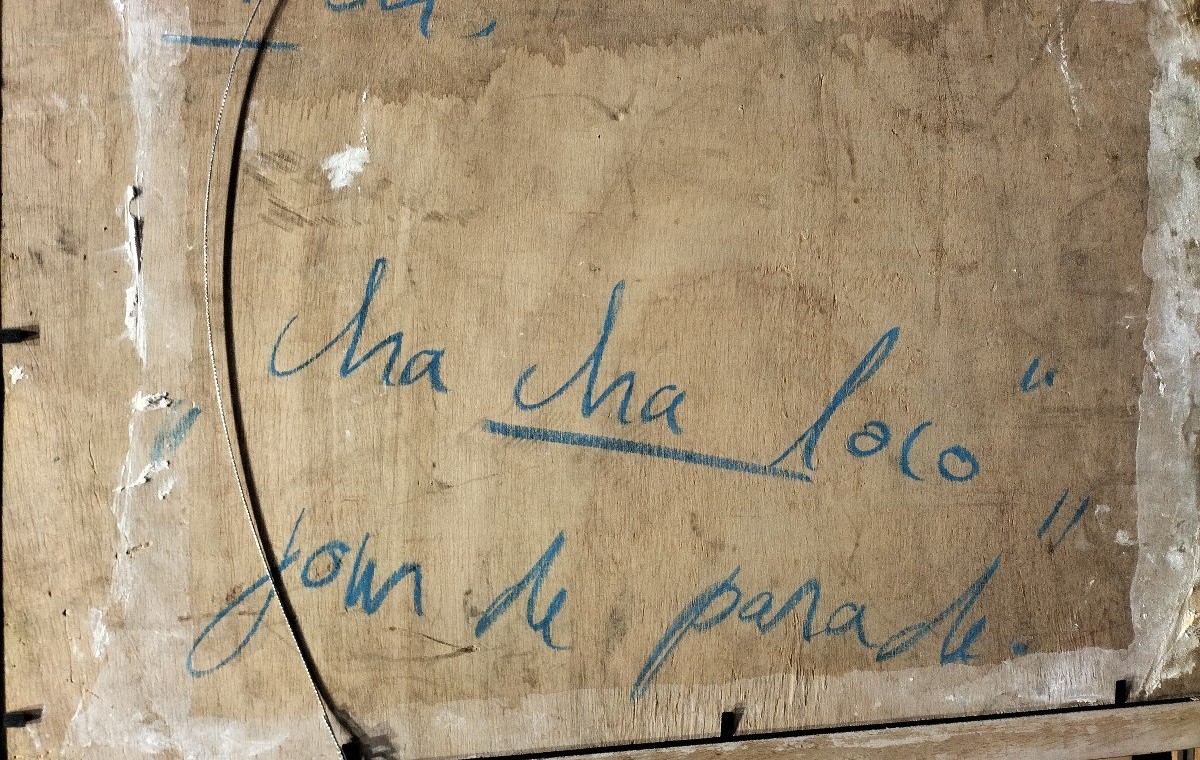 cha cha loco "
" jour de parade. "